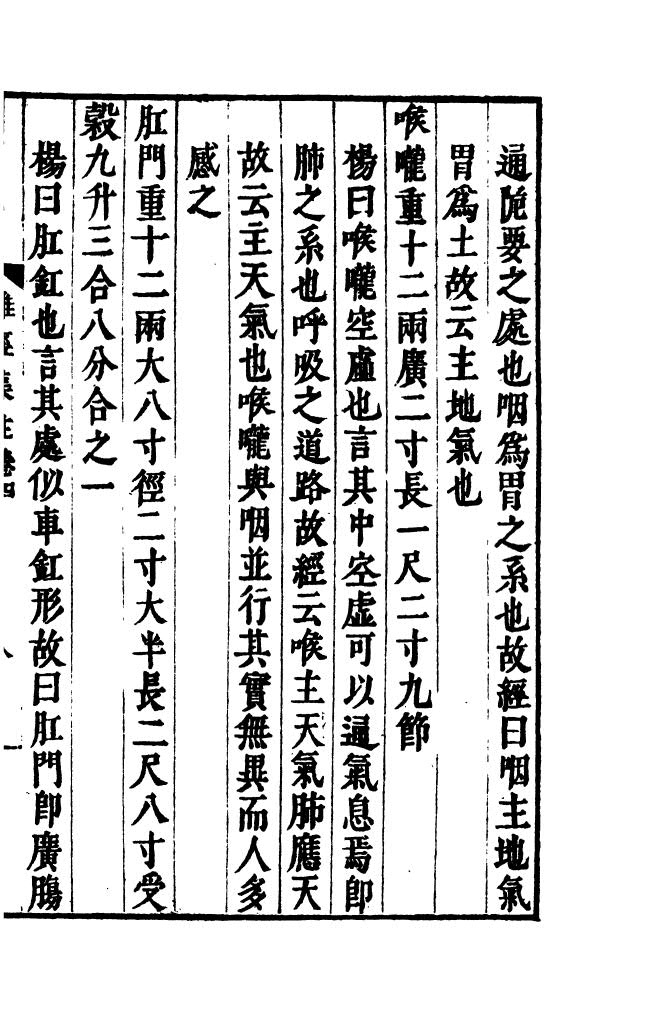 通阨要之處也咽爲胃之系也故經曰咽主地氣
胃爲土故云主地氣也
喉嚨重十二兩廣二寸長一尺二寸九節
楊曰喉嚨空虛也言其中空虛可以通氣息焉卽
肺之系也呼吸之道路故經云喉主天氣肺應天
故云主天氣也喉嚨與咽並行其實無異而人多
惑之
肛門重十二兩大八寸徑二寸大半長二尺八寸受
穀九升三合八分合之一
楊曰肛釭也言其處似車釭形故曰肛門卽廣腸
難經集註卷四
八